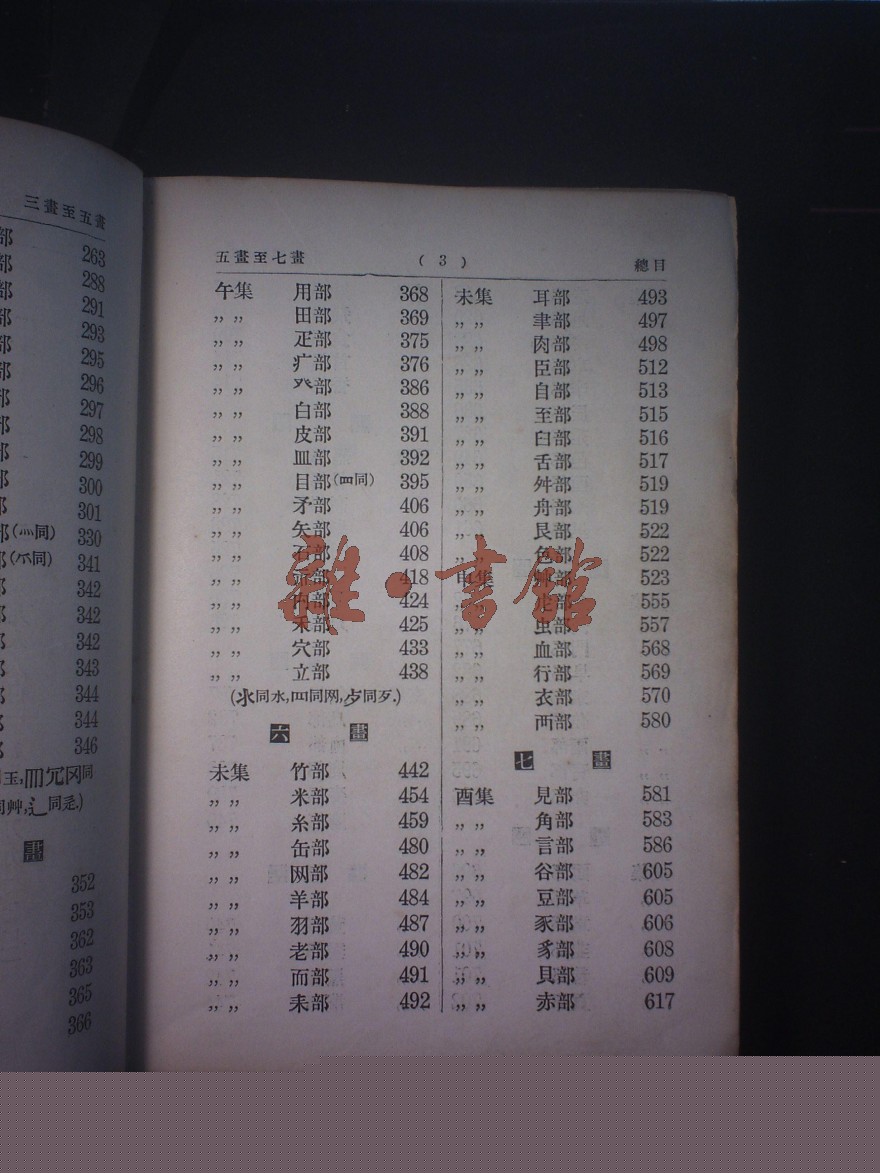 三畫至五畫
部 263
部 288
部 291
部 293
部 295
部 296
部 297
部 298
部 299
部 300
部 301
部(灬同) 330
部(爫同) 341
342
342
342
343
344
344
346
玉,
同艸,辶同辵.)
畫
352
353
362
363
365
366
五畫至七畫 ( 3 ) 總目
午集 用部 368
,, ,, 田部 369
,, ,, 疋部 375
,, ,, 疒部 376
,, ,, 癶部 386
,, ,, 白部 388
,, ,, 皮部 391
,, ,, 皿部 392
,, ,, 目部(罒同) 395
,, ,, 矛部 406
,, ,, 矢部 406
,, ,, 石部 408
,, ,, 示部 418
,, ,, 禸部 424
,, ,, 禾部 425
,, ,, 穴部 433
,, ,, 立部 438
(氺同水,罒同网,歺同歹.)
六畫
未集 竹部 442
,, ,, 米部 454
,, ,, 糸部 459
,, ,, 缶部 480
,, ,, 网部 482
,, ,, 羊部 484
,, ,, 羽部 487
,, ,, 老部 490
,, ,, 而部 491
,, ,, 耒部 492
未集 耳部 493
,, ,, 聿部 497
,, ,, 肉部 498
,, ,, 臣部 512
,, ,, 自部 513
,, ,, 至部 515
,, ,, 臼部 516
,, ,, 舌部 517
,, ,, 舛部 519
,, ,, 舟部 519
,, ,, 艮部 522
,, ,, 色部 522
申集 艸部 523
,, ,, 虍部 555
,, ,, 虫部 557
,, ,, 血部 568
,, ,, 行部 569
,, ,, 衣部 570
,, ,, 襾部 580
七畫
酉集 見部 581
,, ,, 角部 583
,, ,, 言部 586
,, ,, 谷部 605
,, ,, 豆部 605
,, ,, 豕部 606
,, ,, 豸部 608
,, ,, 貝部 609
,, ,, 赤部 617
雜·書館